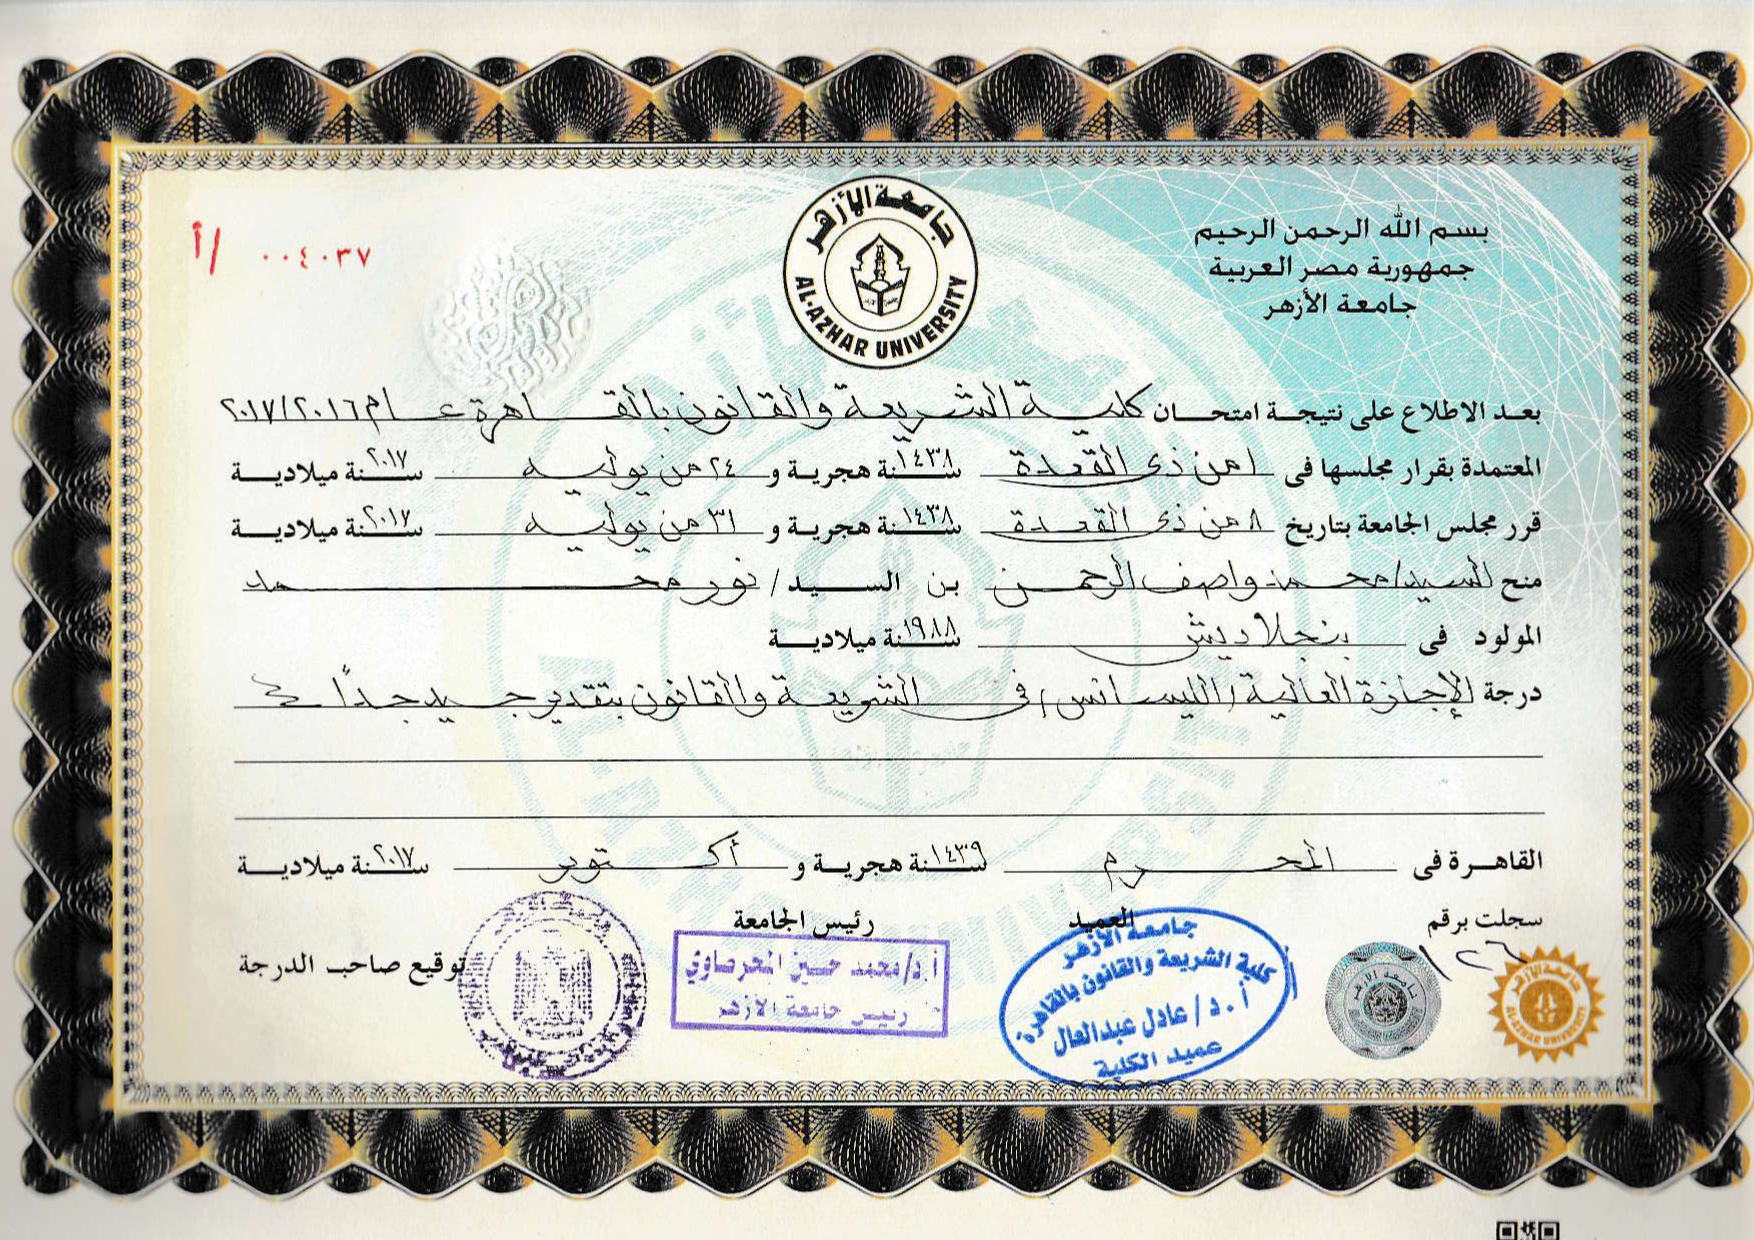 بسم الله الرحمن الرحيم
جمهورية مصر العربية
جامعة الأزهر
جامعة الأزهر
AL-AZHAR UNIVERSITY
أ/ ٠٠٤٠٣٧
بعد الاطلاع على نتيجة امتحان كلية الشريعة والقانون بالقاهرة عام ٢٠١٧/٢٠١٦
المعتمدة بقرار مجلسها فى ١ من ذى القعدة سنة ١٤٣٨ هجرية و ٢٤ من يوليه سنة ٢٠١٧ ميلادية
قرر مجلس الجامعة بتاريخ ٨ من ذى القعدة سنة ١٤٣٨ هجرية و ٣١ من يوليه سنة ٢٠١٧ ميلادية
منح السيد/ محمد واصف الرحمن بن السيد/ نور محمد
المولود فى بنجلاديش سنة ١٩٨٨ ميلادية
درجة الإجازة العالية (الليسانس) فى الشريعة والقانون بتقدير جيد جداً
القاهرة فى المحرم سنة ١٤٣٩ هجرية و أكتوبر سنة ٢٠١٧ ميلادية
سجلت برقم
١٢٦
العميد
جامعة الأزهر
كلية الشريعة والقانون بالقاهرة
أ.د/ عادل عبدالعال
عميد الكلية
رئيس الجامعة
أ.د/محمد حسين المحرصاوي
رئيس جامعة الأزهر
توقيع صاحب الدرجة